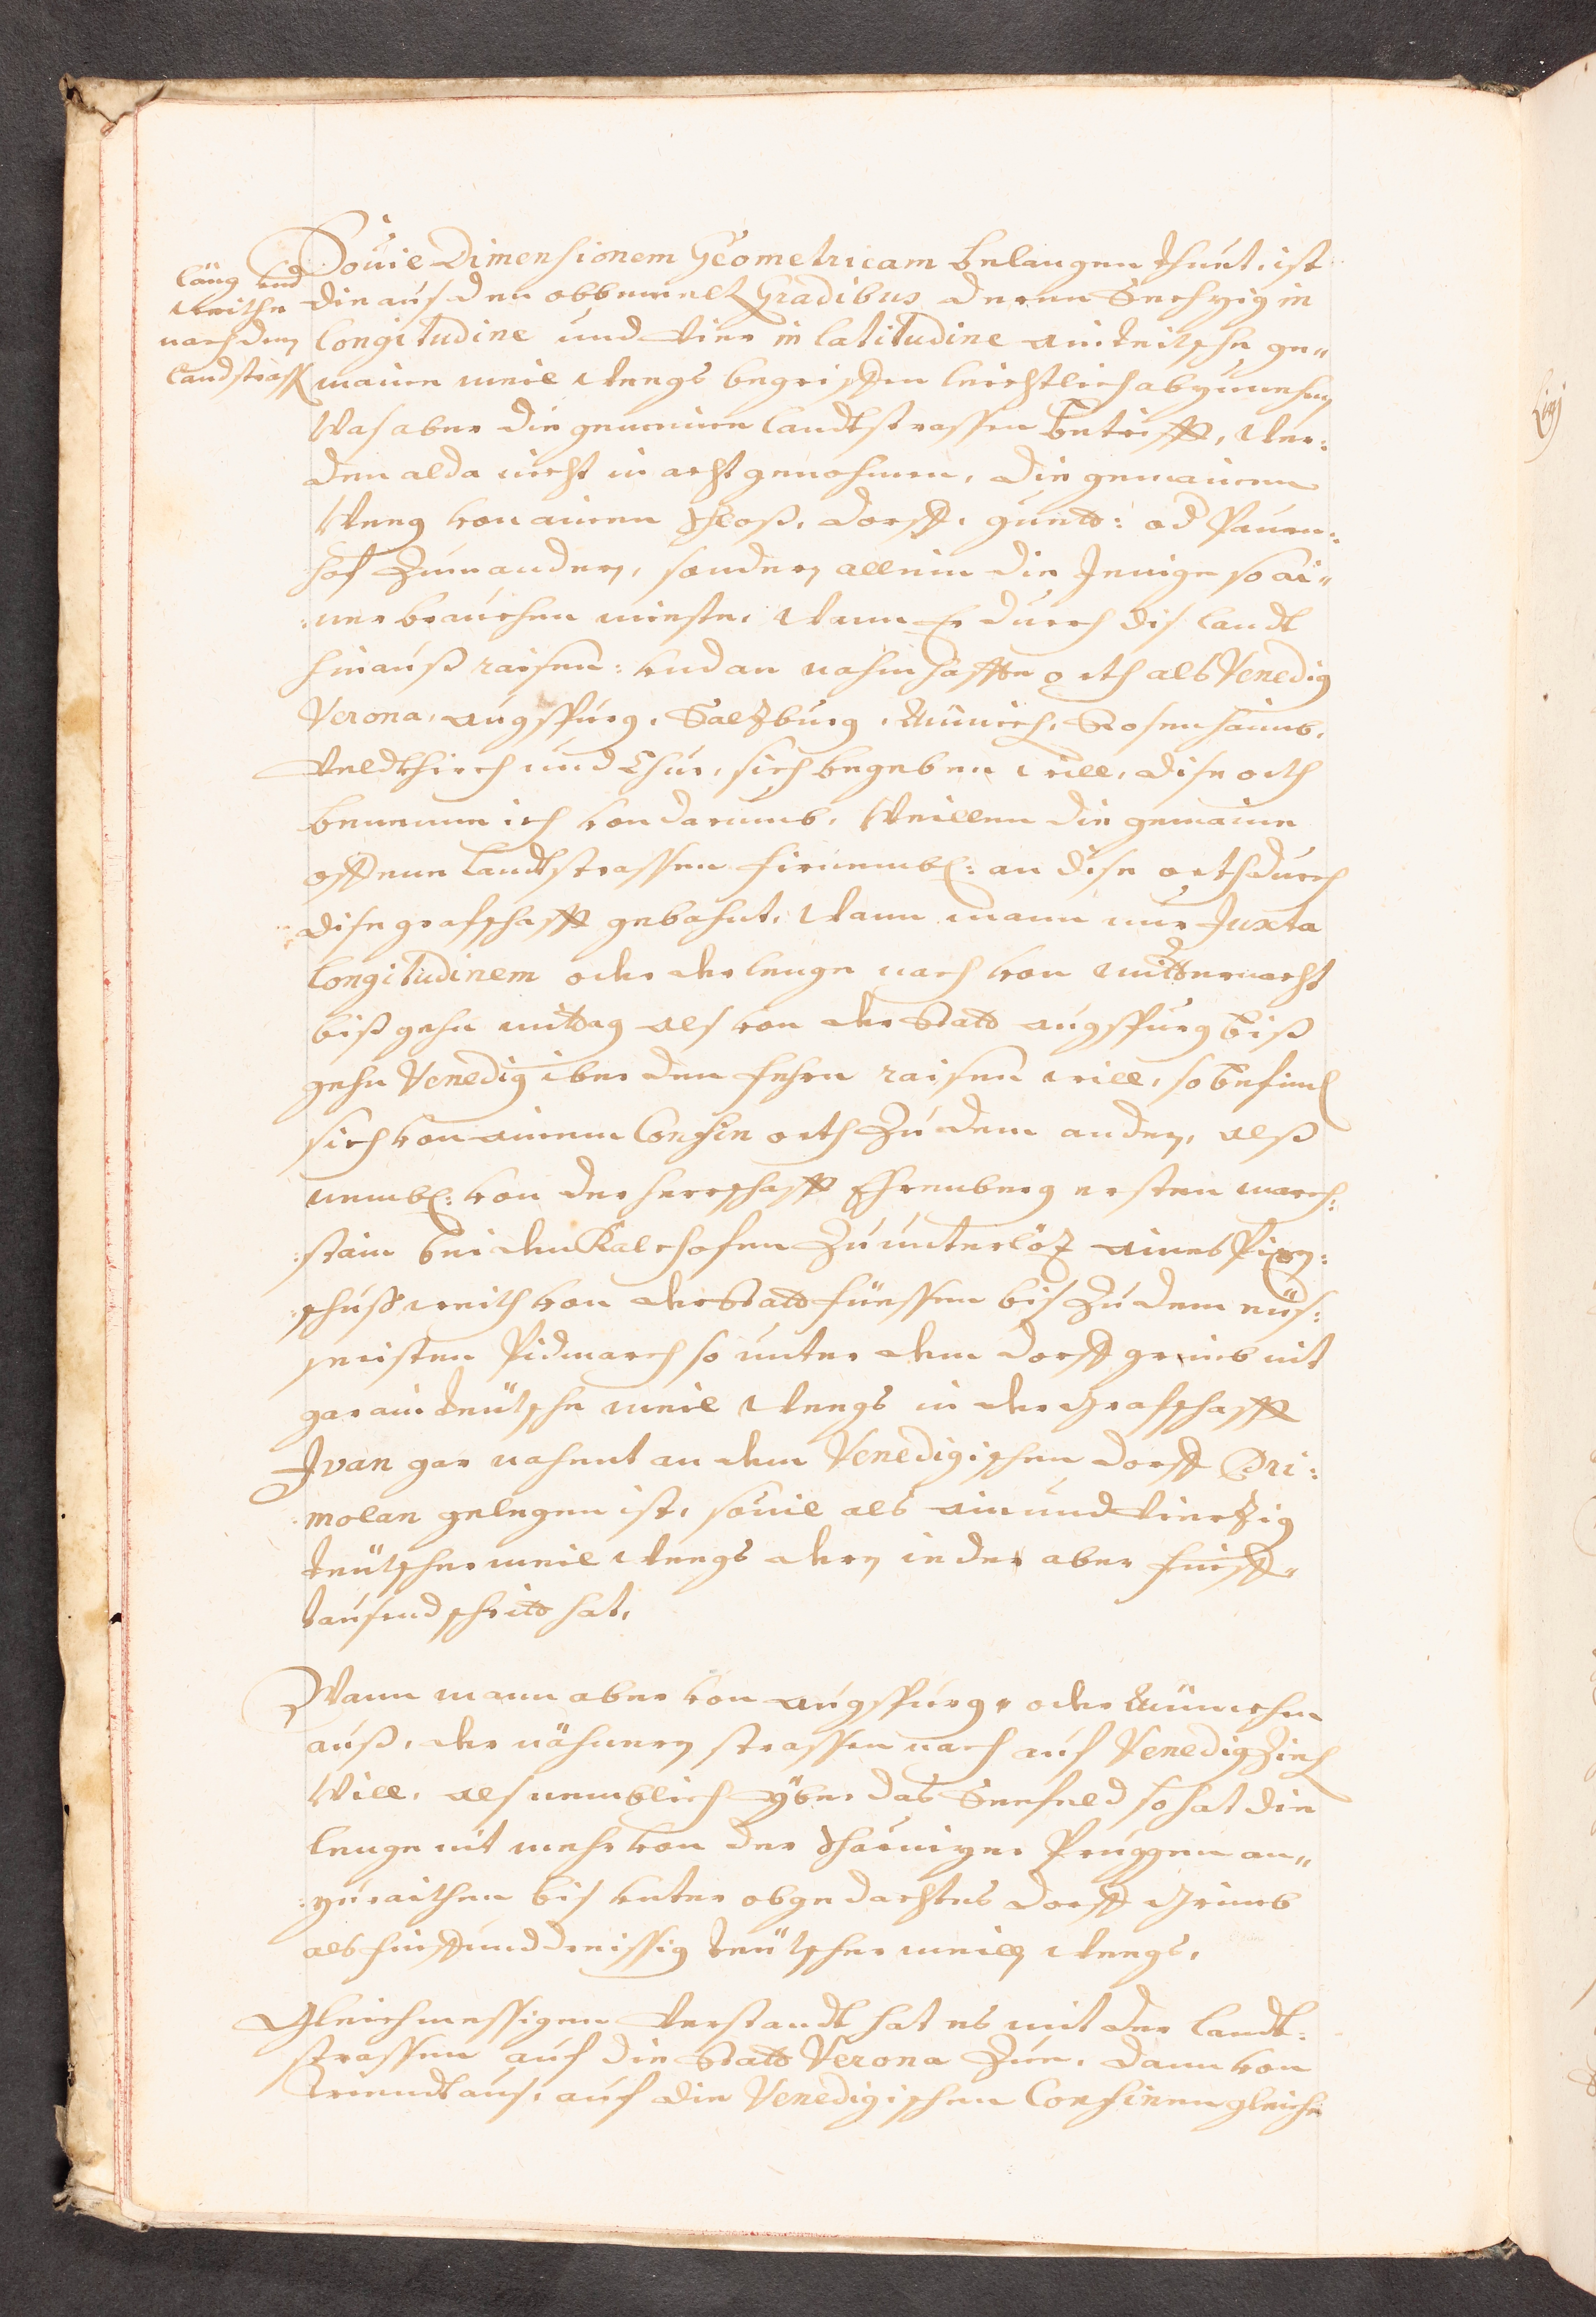 läng und
weithe
nach dem
landstrass
Souie Dimensionem Geometricam belangen thuet, ist
die aus den obbemelt Gradibus deren Sechzig in
longitudine und vier in latitudine ain teitsche ge„
maine meil weegs begreiffen leichtlich abzunehmen
Was aber die gemeine landtstrassen betrifft, wer:
den alda nicht in acht genohmen, die gemainen
Weeg von ainen schloß, dorff, guett: od Pauren:
hof zum andern, sondern allein die Jenige so ai„
:ner brauchen mieste, wann Er durch dis landt
hinauß raisen: und an nahmhaffte orth als Venedig
Verona, Augspurg, Salzburg, Münich, Rosenhaimb,
Veldtkhirch und Chur, sich begeben will, dise orth
benenne ich von darumb, Weillen die gemaine
offene landtstrassen firnembl: an dise orth durch
dise grafschafft gebahnt, wann mann nur Juxta
longitudinem oder der lenge nach von mitternacht
biß gehn mittag als von der Statt Augspurg biß
gehn Venedig iber den fehrn raisen will, so befindt
sich von ainem Confin orth zu dem andern, alß
nembl: von der herrschafft Ehrenberg ersten march:
:stain bei den Kalchofen zu unterlöz aines Pixen:
:schuß weith von der Statt Füessen bis zu dem eüs:
seristen Pidmarch so unter dem dorff grimb nit
gar ain teütsche meil weegs in der Grafschafft
Ivan gar nahent an dem Venedigischen dorff Pri:
:molan gelegen ist, souil als ain und viertzig
teütscher meil weegs deren ieder aber fünff„
tausend schritt hat,
Wann mann aber von Augspurg, oder Münchn
auß, der nähnern strassen nach auf Venedig ziech
Will, als nemblich yber das Seefeld so hat die
lenge nit mehr von der Scharnizer Pruggen an„
:zuraithen bis unter obgedachtes dorff Grimb
als fünff und dreissig teütscher meillen weegs,
Gleichmessigen Verstandt hat es mit der landt:
strassen auf die Statt Verona zue, dann von
Triendt aus, auf die Venedigischen Confinen gleiche